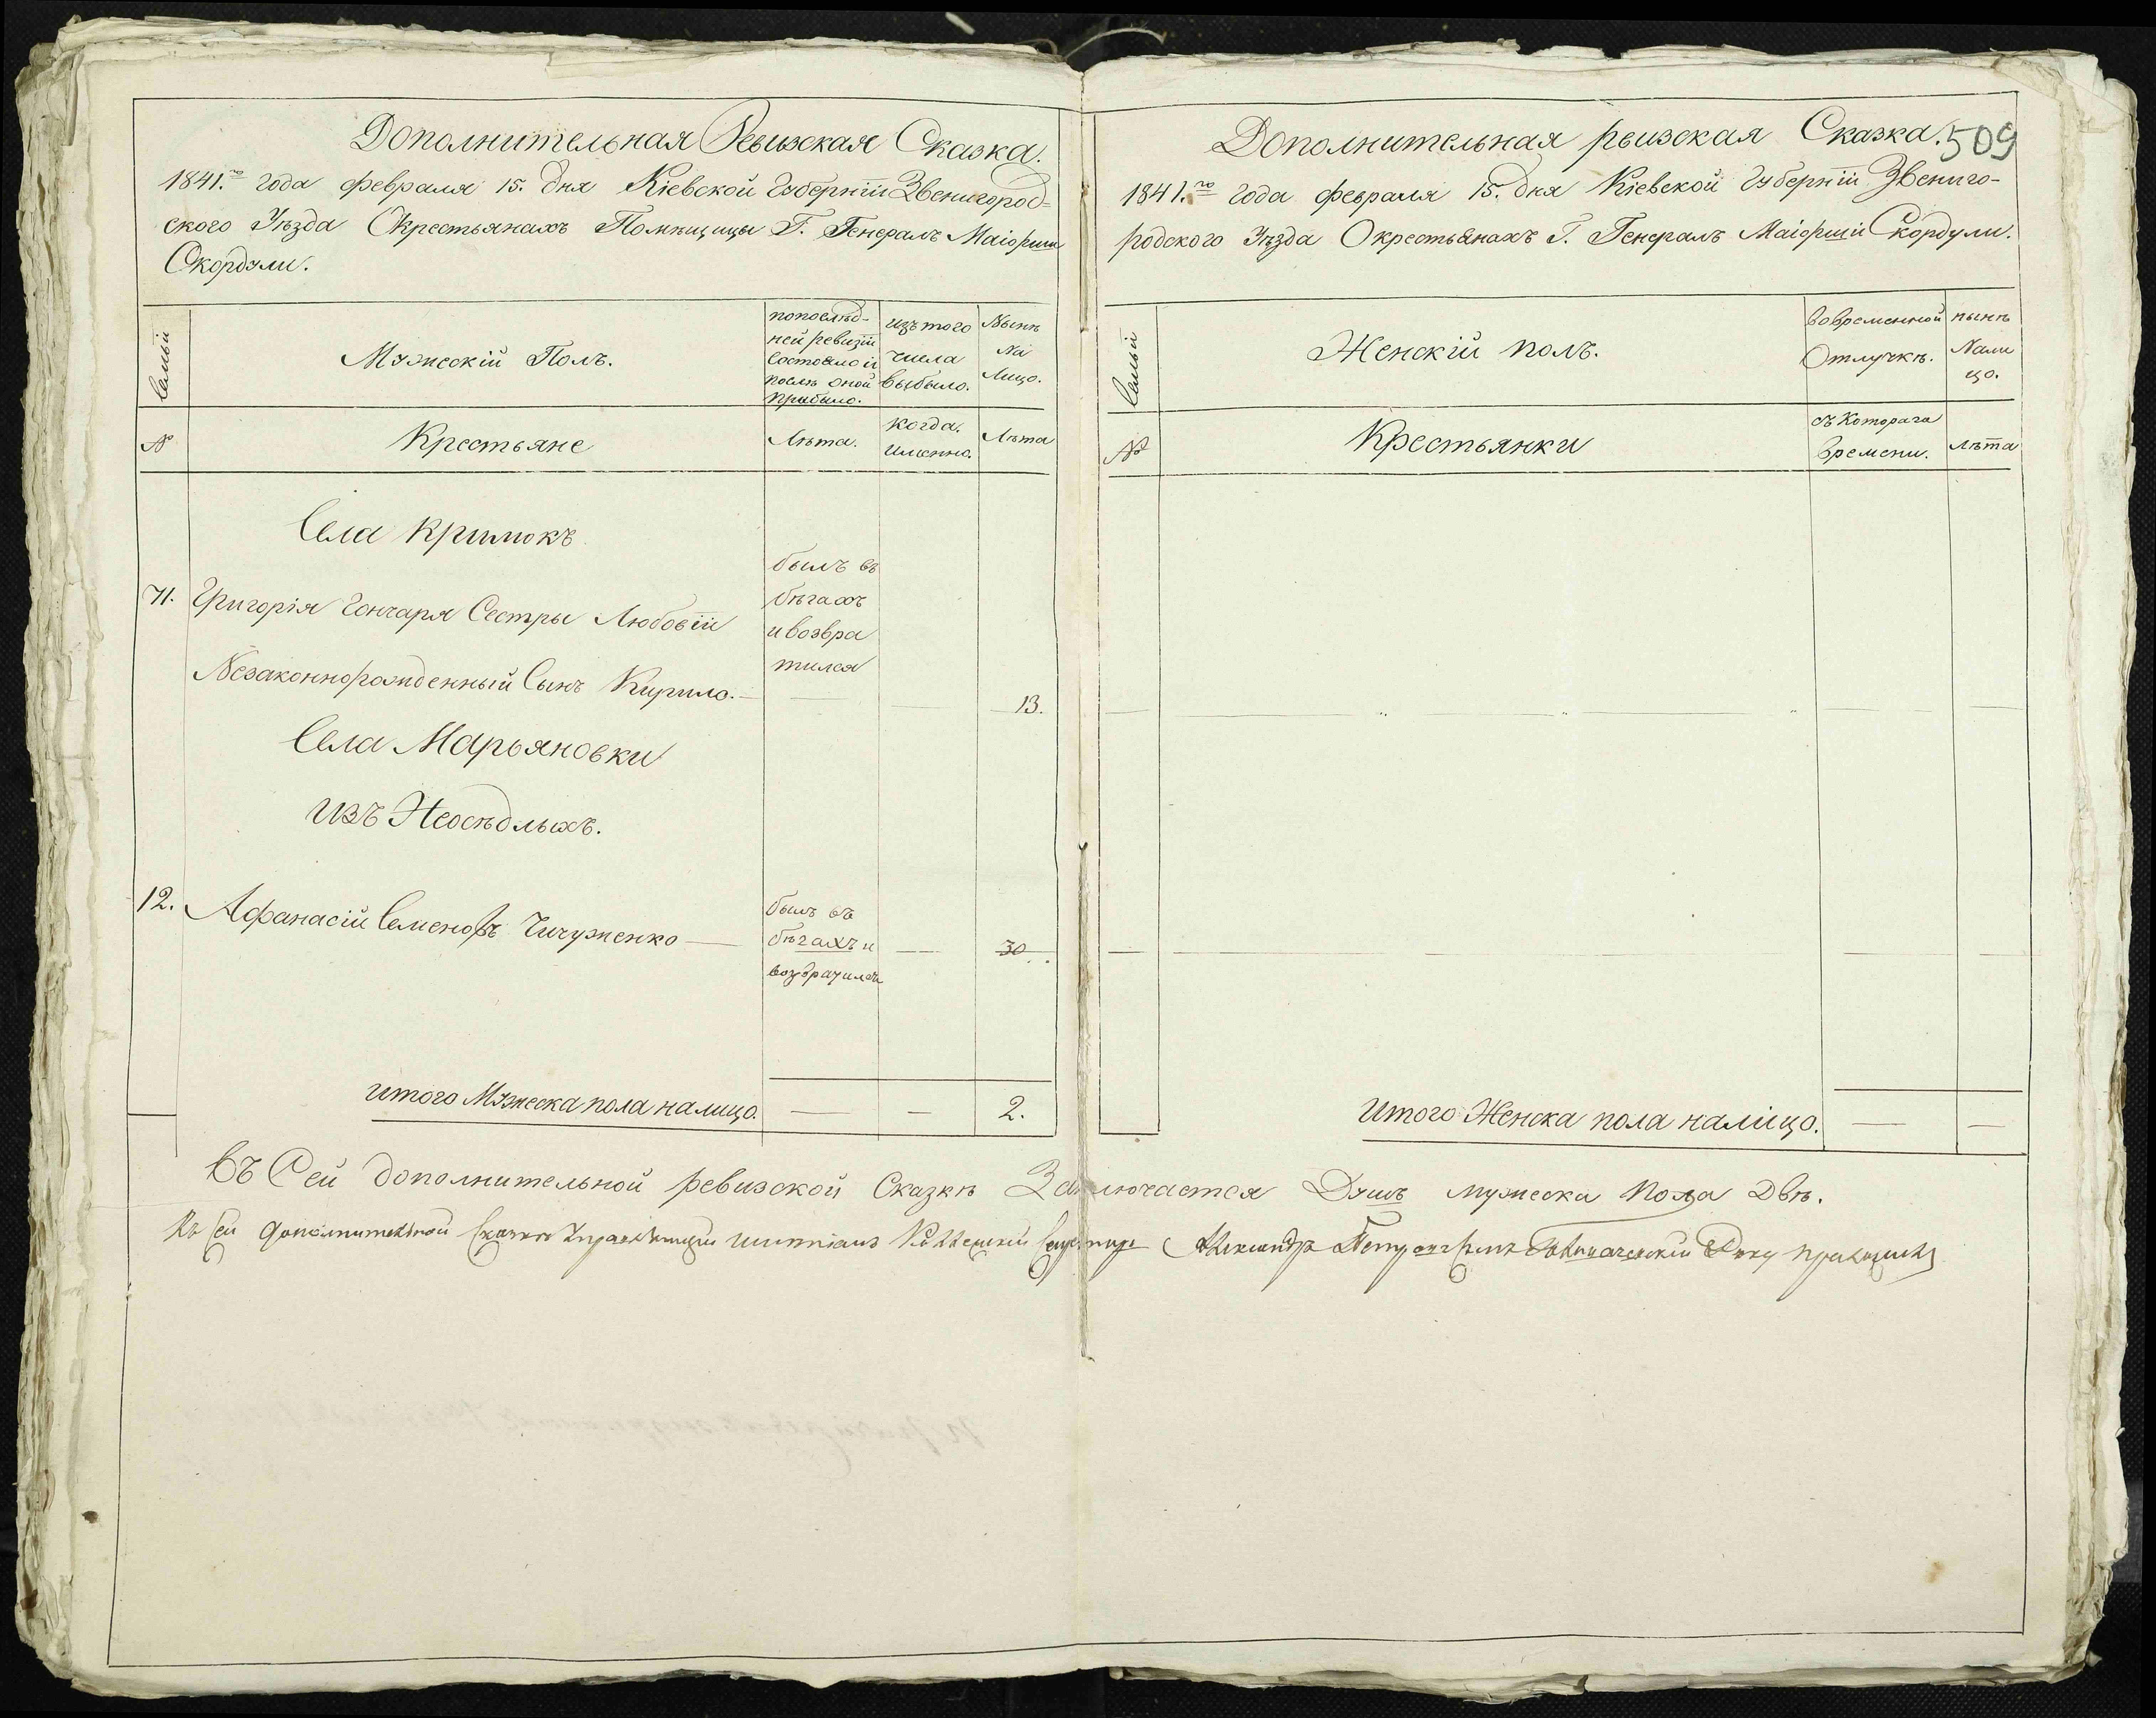 Дополнительная Ревизская Сказка.
1841.го года февраля 15. дня Кіевской Губерніи Звенигород=
ского Уѣзда Окрестьянахъ Помѣщицы Г. Генералъ Маіорши
Скордули.
Семьи
Мужескій Полъ.
попослѣд-
ней ревизіи
Состояло и
послѣ оной
прибыло.
изътого
числа
выбыло.
Нынѣ
На
Лицо.
№
Крестьяне
Лѣта.
когда.
Именно.
Лѣта
Села Кримокъ
71. Григорія Гончаря Сестры Любовіи
Незаконнорожденный Сынъ Кирило. 13.
былъ въ
бѣгахъ
и возвра
тился
Села Марьяновки
изъ Неосѣдлыхъ.
12. Афанасій Семеновъ Чичуженко 30
былъ въ
бѣгахъ и
возвратился
итого Мужеска пола налицо. 2.
Дополнительная ревизская Сказка. 509
1841.го года февраля 15. дня Кіевской Губерніи Звениго-
родского Уѣзда Окрестьянахъ Г. Генералъ Маіорши Скордули.
Семьи
Женскій полъ.
Вовременной
Отлучкѣ.
нынѣ
Нали
цо.
№
Крестьянки
съ Котораго
Времени.
лѣта
Итого Женска пола налицо.
Въ Сей дополнительной ревизской Сказкѣ Заключается Душъ мужеска Пола Двѣ.
Къ сей дополнительной Сказкѣ Управляющій имѣніемъ Александръ Петровъ Сынъ Руку приложилъ